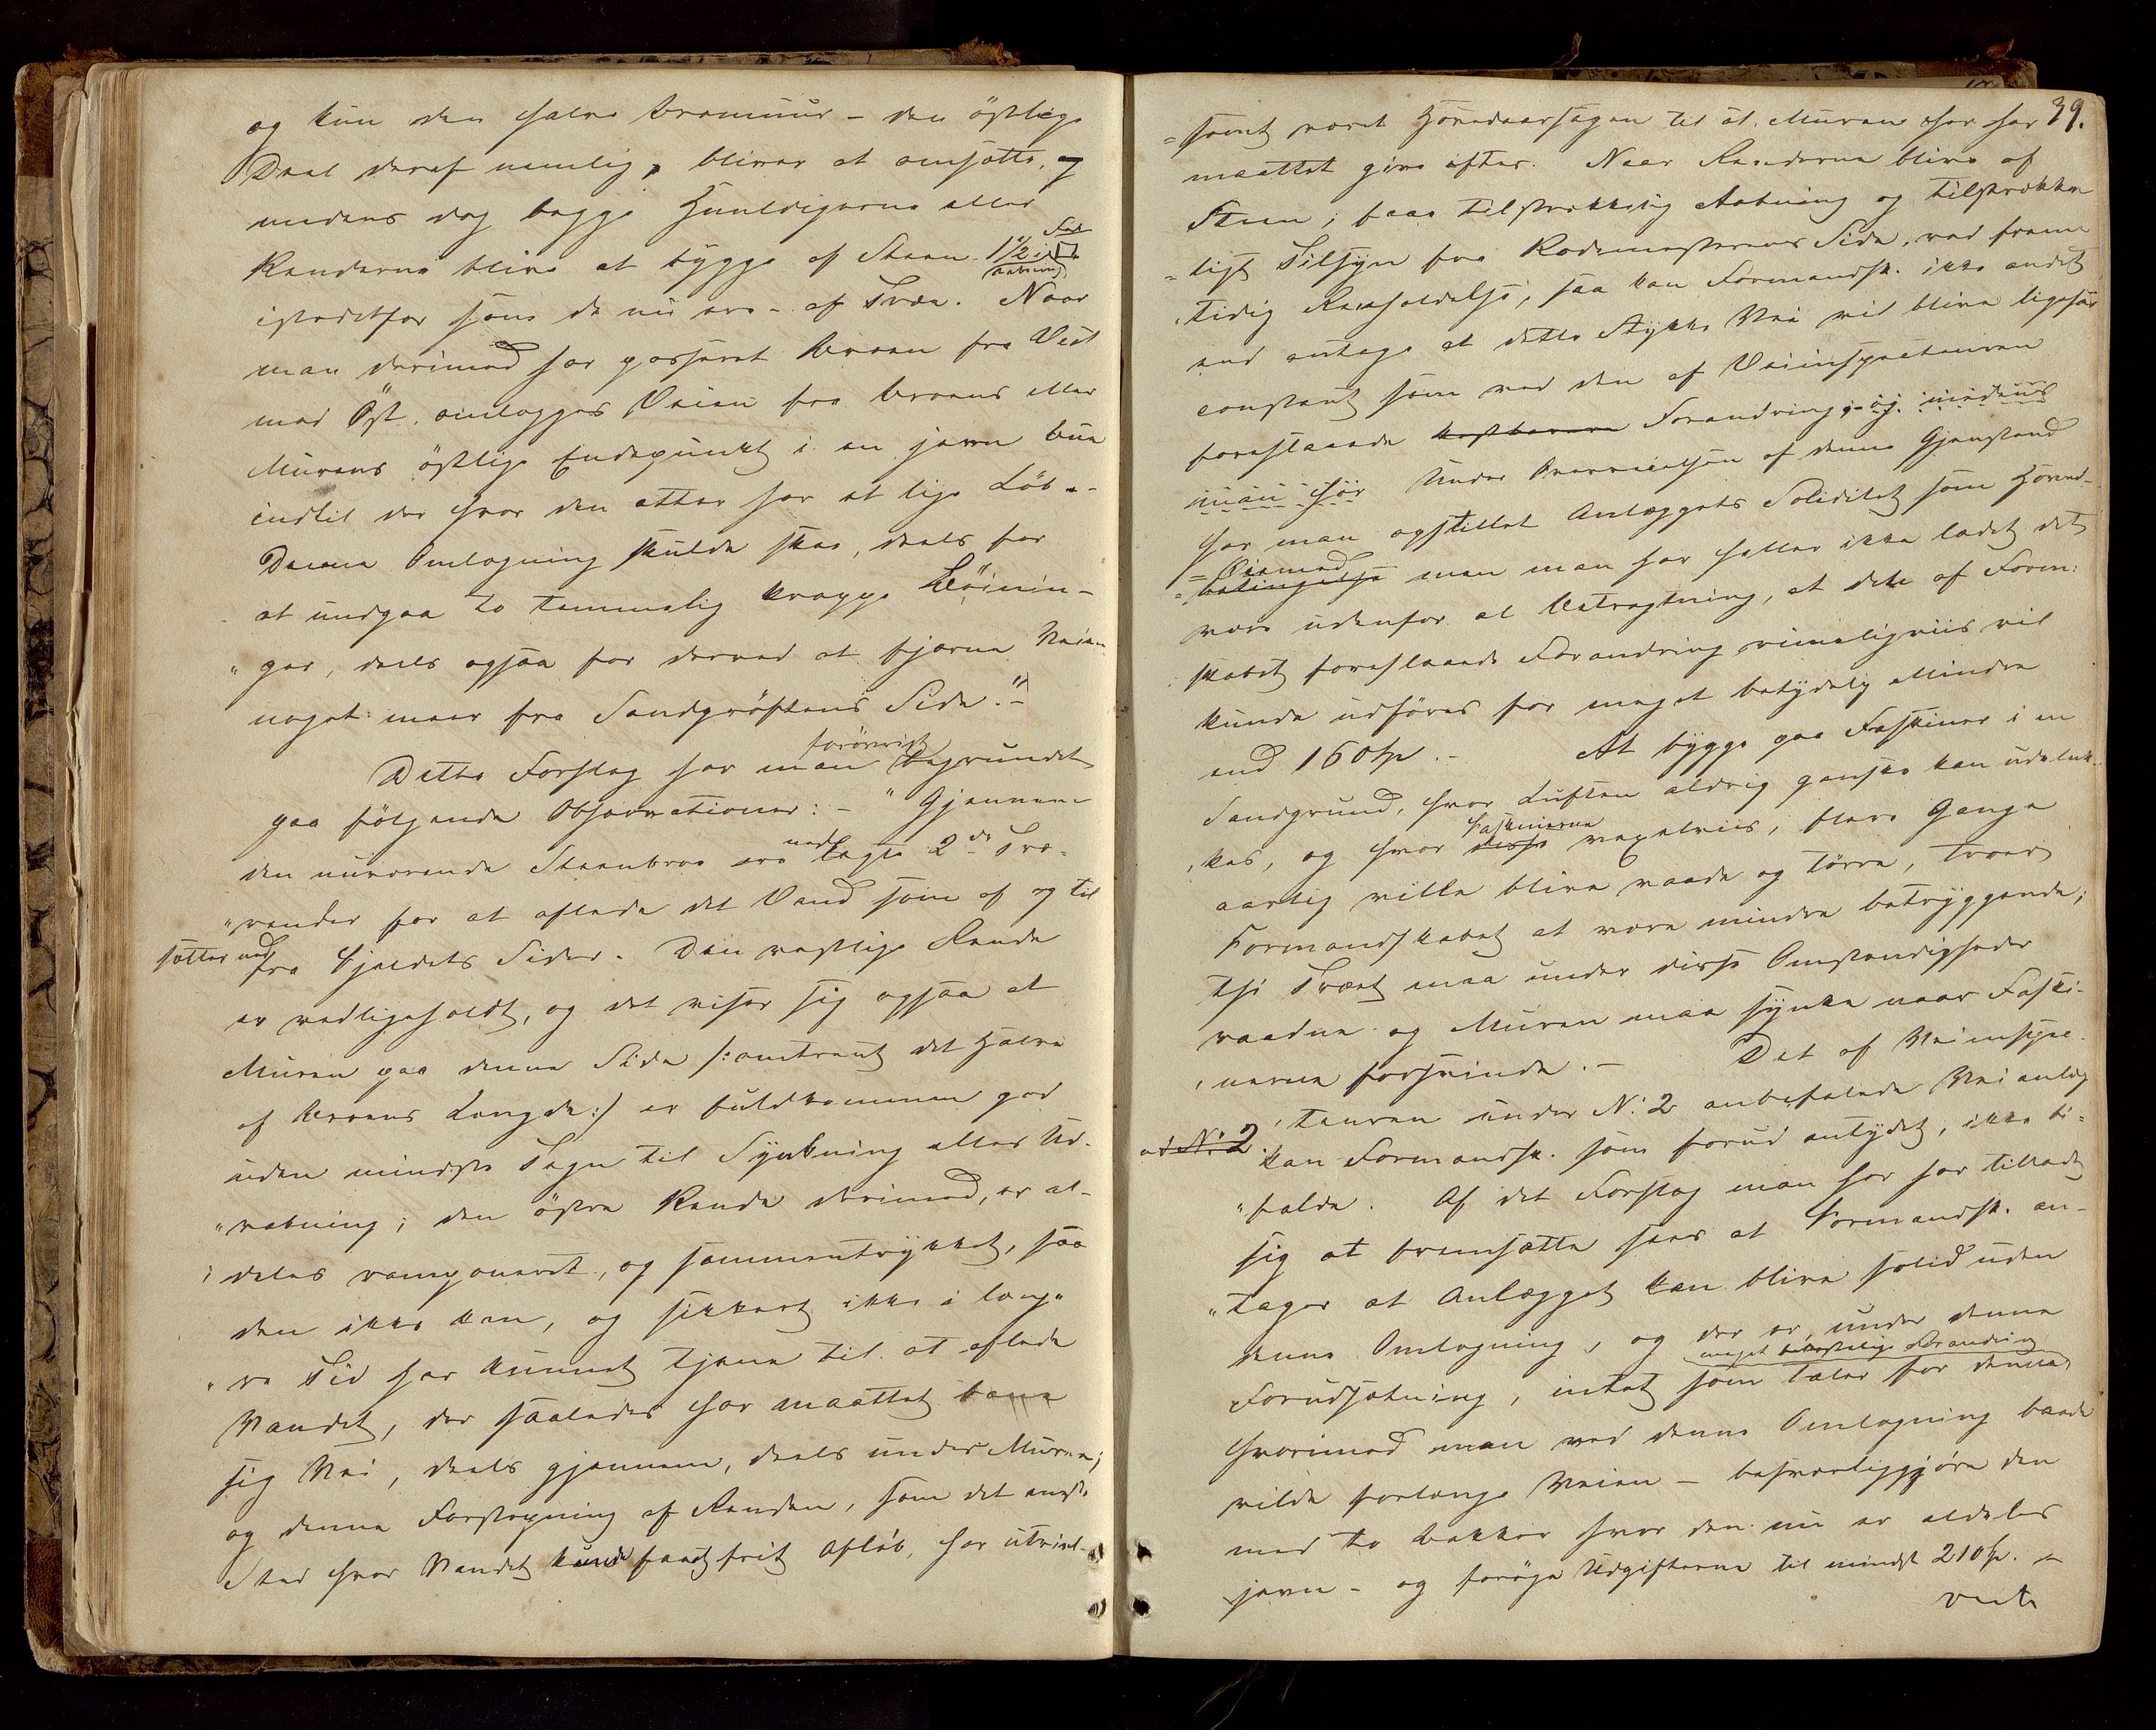 og kun den halve Bromuur – den östlige
Deel deraf nemlig, bliver at omsætte, og
medens dog begge Huuldigerne eller
Renderne blive at bygge af Steen 1½ i □ Fod Aabning
istedetfor som de nu ere – af Træe. Naar
man derimod har passeret Broen fra Vest
mod Öst, omlægges Veien fra Broens eller
Murens östlige Endepunkt i en jævn Bue
indtil der hvor den atter har et lige Löb. –
Denne Omlægning skulde skee, deels for
at undgaa to temmelig knappe Böinin-
"ger, deels ogsaa for derved at fjerne Veien
noget meer fra Sandgröftens Side." –
Dette Forslag har man forövrigt begrundet
paa fölgende Observationer: – "Gjennem
den nuværende Steenbroe ere nedlagte 2de Træ-
"render for at aflede det Vand som af og til
sætter ned fra Fjeldets Sider. Den vestlige Rende
er vedligeholdt, og det viser sig ogsaa at
Muren paa denne Side /: omtrent det Halve
af Broens Længde :/ er fuldkommen god
uden mindste Tegn til Synkning eller Ud-
"rabning; den östre Rende derimod, er al-
"deles ramponeret, og sammentrykket, saa
den ikke kan, og sikkert ikke i læng-
"re Tid har kunnet tjene til at aflede
Vandet, der saaledes har maattet bane
sig Vei, deels gjennem, deels under Muren;
og denne Forstopning af Renden, som det eneste
Sted hvor Vandet kunde faaet frit Aflöb, har utvivl-
39.
=somt været Hovedaarsagen til at Muren her har
maattet give efter. Naar Renderne blive af
Steen, faae tilstrækkelig Aabning og tilstrække-
=ligt Tilsyn fra Rodemesterens Side, ved frem-
"tidig Reenholdelse, saa kan Formandsk. ikke andet
end antage at dette Stykke Vei vil blive ligesaa
constant som ved den af Veiinspecteuren
foreslaaede kostbarere Forandring; og medens
man her Under Overveielsen af denne Gjenstand
har man opstillet Anlæggets Soliditet som Hoved-
=Öiemed betingelse men man har heller ikke ladet det
være udenfor al Betragtning, at den af Form:
skabet foreslaaede Forandring rimeligviis vil
kunde udföres for meget betydelig Mindre
end 160 Sp. – At bygge paa Faskiner i en
Sandgrund, hvor Luften aldrig ganske kan udeluk-
"kes, og hvor disse Faskinerne vexelviis, flere Gange
aarlig ville blive vaade og törre, troer
Formandskabet at være mindre betryggende;
thi Træet maa under disse Omstændigheder
raadne og Muren maa synke naar Faski-
"nerne forsvinde. – Det af Veiinspec-
"teuren under N: 2 anbefalede Veianlæg
ad N: 2 kan Formandsk. som forud antydet, ikke bi-
"falde. Af det Forslag man her har tilladt
sig at fremsætte sees at Formandsk. an-
"tager at Anlægget kan blive solid uden
denne Omlægning, og der er, under denne
Forudsætning, intet som taler for denne meget bekostelige Forandring
hvorimod man ved denne Omlægning baade
vilde forlænge Veien – besværliggjöre den
med to Bakker hvor den nu er aldeles
jævn – og foröge Udgifterne til mindst 210 Sp. –